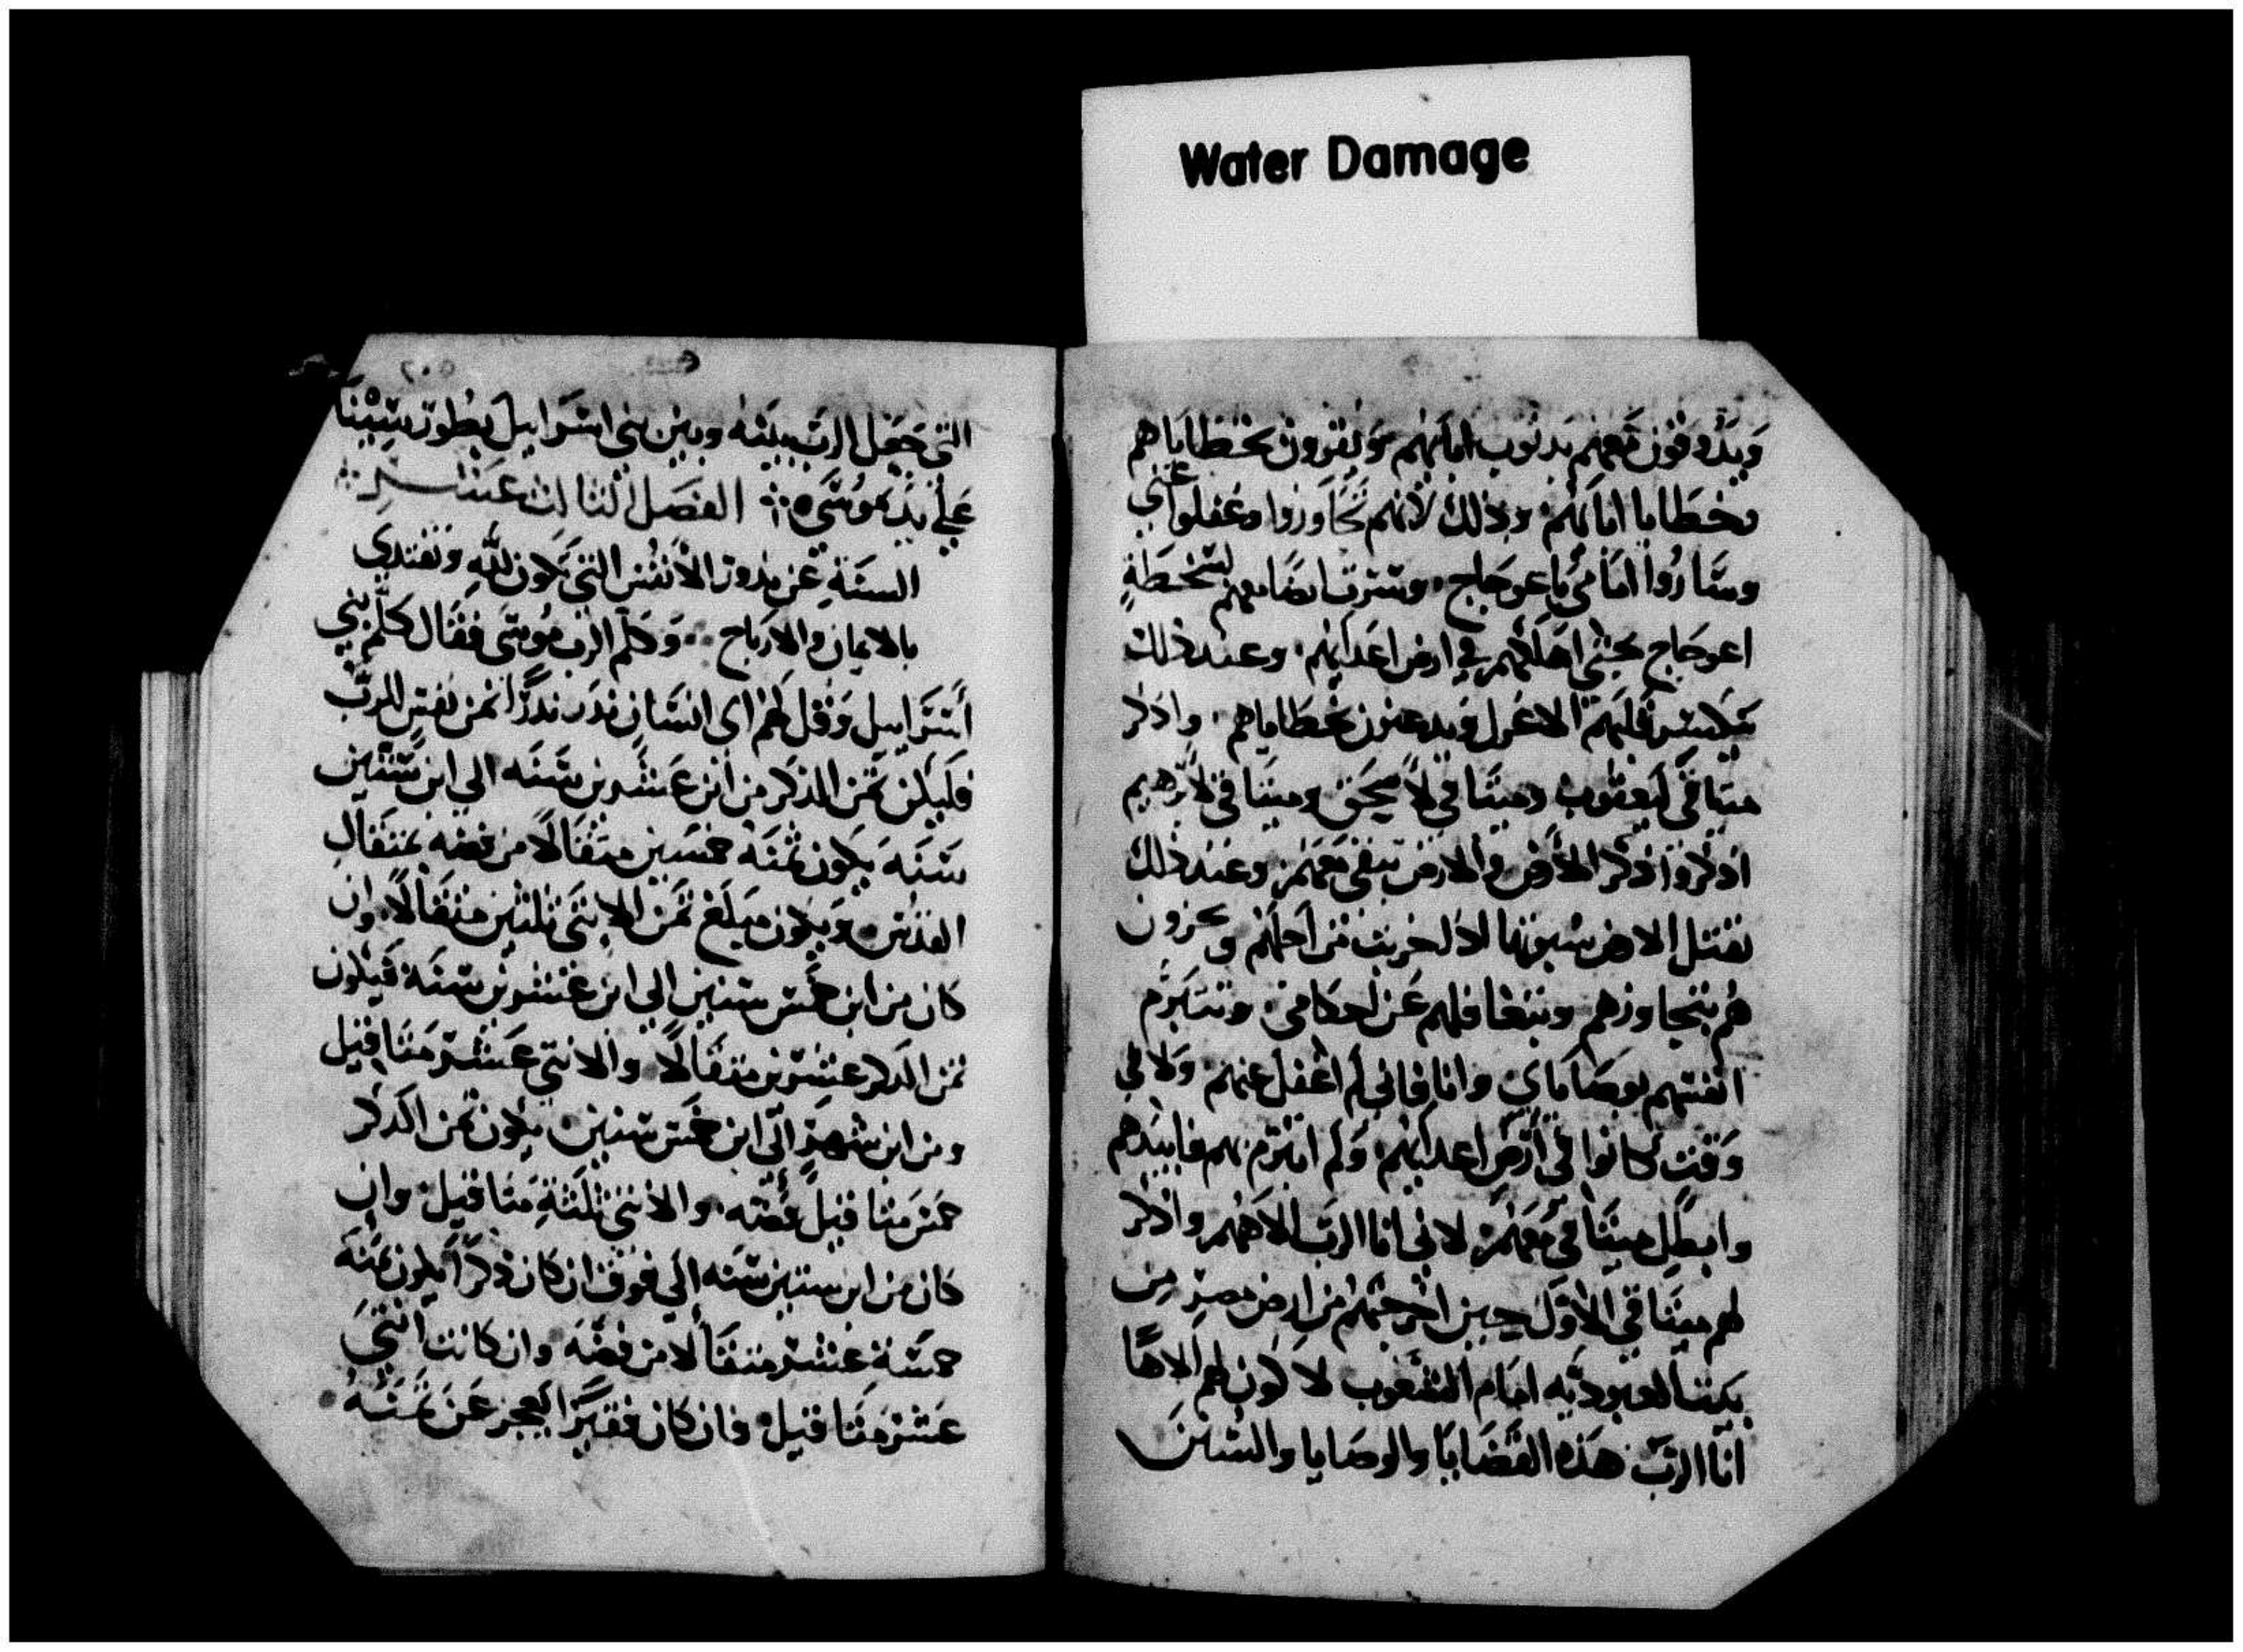 Water Damage
ويذوقون معهم بدنوب ابايهم ويقرون بخطاياهم
وخطايا ابايهم وذلك لانهم تجاوزوا وغفلوا عني
وساروا امامي باعوجاج وسرت ايضا معهم لسخطة
اعوجاج حتي اهلكهم في ارض اعدايهم وعند ذلك
ينكسر قلبهم الاغرل ويدعنون بخطاياهم واذكر
ميتاقي ليعقوب وميتاقي لاسحق وميتاقي لابرهيم
اذكر واذكر الارض والارض تبقي معهم وعند ذلك
تقتبل الارض سبوتها لاد الخربت من اجلهم ويحزون
هم بتجاوزهم وبتغافلهم عن احكامي وتتبرم
انفسهم بوصاياي وانا فاني لم اغفل عنهم ولا في
وقت كانوا في ارض اعدايهم ولم اتبرم بهم فابيدهم
وابطل ميتاقي معهم لاني انا الرب الاههم واذكر
لهم ميتاقي الاول حين اخرجتهم من ارض مصر من
بيت العبوديه امام الشعوب لاكون لهم الاها
انا الرب هذه القضايا والوصايا والسنن
٢٠٥
التي جعل الرب بينه وبين بني اسرايل بطور سينا
علي يد موسي الفصل الثالث عشر
السنة عن بدور الانفس التي تكون لله وتفتدي
بالايمان والارباح وكلم الرب موسي فقال كلم بني
اسرايل وقل لهم اي انسان ندر ندرا ثمن نفس للرب
فليكن ثمن الذكر من ابن عشرين سنه الي ابن ستين
سنه يكون ثمنه خمسين متقالا من فضه بمتقال
القدس ويكون مبلغ ثمن الانثي ثلثين متقالا وان
كان من ابن خمس سنين الي ابن عشرين سنه فيكون
ثمن الذكر عشرين متقالا والانثي عشر متاقيل
ومن ابن شهر الي ابن خمس سنين يكون ثمن الذكر
خمس متاقيل فضه والانثي ثلثة متاقيل وان
كان من ابن ستين سنه الي فوق ان كان ذكرا يكون ثمنه
خمسة عشر متقالا من فضه وان كانت انثي
عشر متاقيل فان كان فقيرا يعجز عن ثمنه